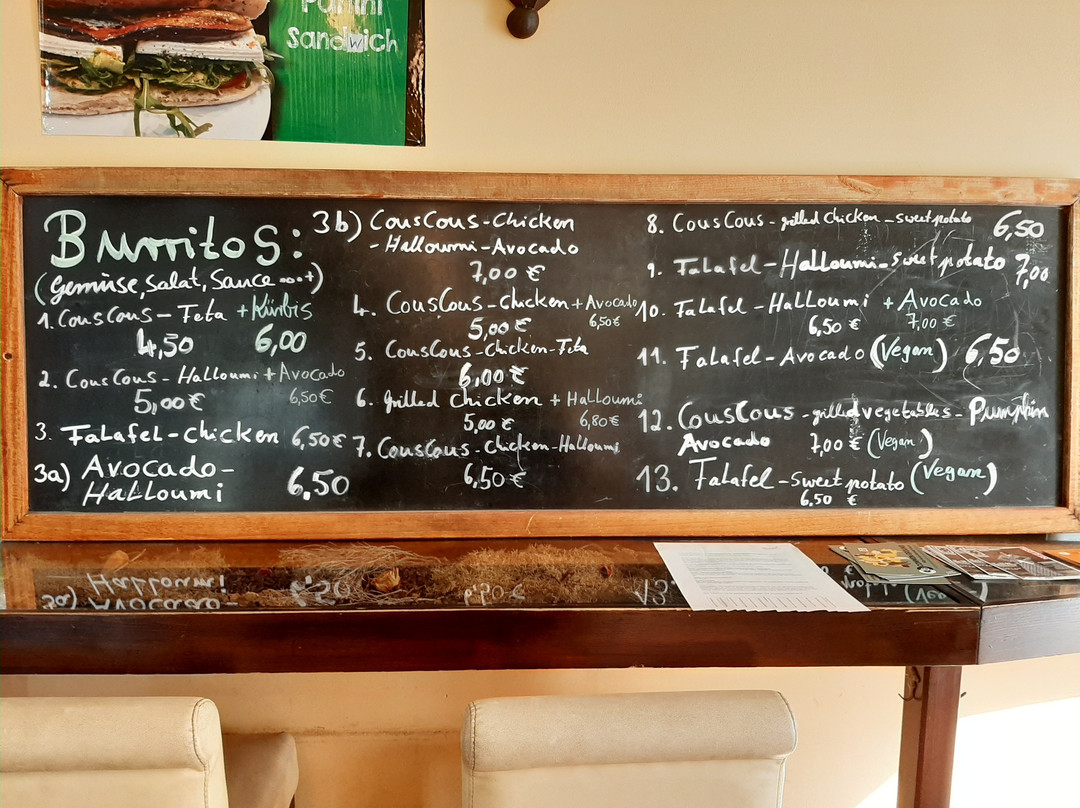 Panini
Sandwich
Burritos:
(Gemüse, Salat, Sauce
1. CousCous - Feta + Kürbis
4,50 6,00
2. CousCous - Halloumi + Avocado
5,00 € 6,50 €
3. Falafel - Chicken 6,50 €
3a) Avocado -
Halloumi 6,50
3b) CousCous - Chicken
- Halloumi - Avocado
7,00 €
4. CousCous - Chicken + Avocado
5,00 € 6,50 €
5. CousCous - Chicken - Feta
6,00 €
6. grilled Chicken + Halloumi
5,00 € 6,80 €
7. CousCous - Chicken - Halloumi
6,50 €
8. CousCous - grilled Chicken - sweet potato 6,50
9. Falafel - Halloumi - sweet potato 7,00
10. Falafel - Halloumi + Avocado
6,50 € 7,00 €
11. Falafel - Avocado (Vegan) 6,50
12. CousCous - grilled vegetables - Pumpkin
Avocado 7,00 € (Vegan)
13. Falafel - sweet potato (Vegan)
6,50 €